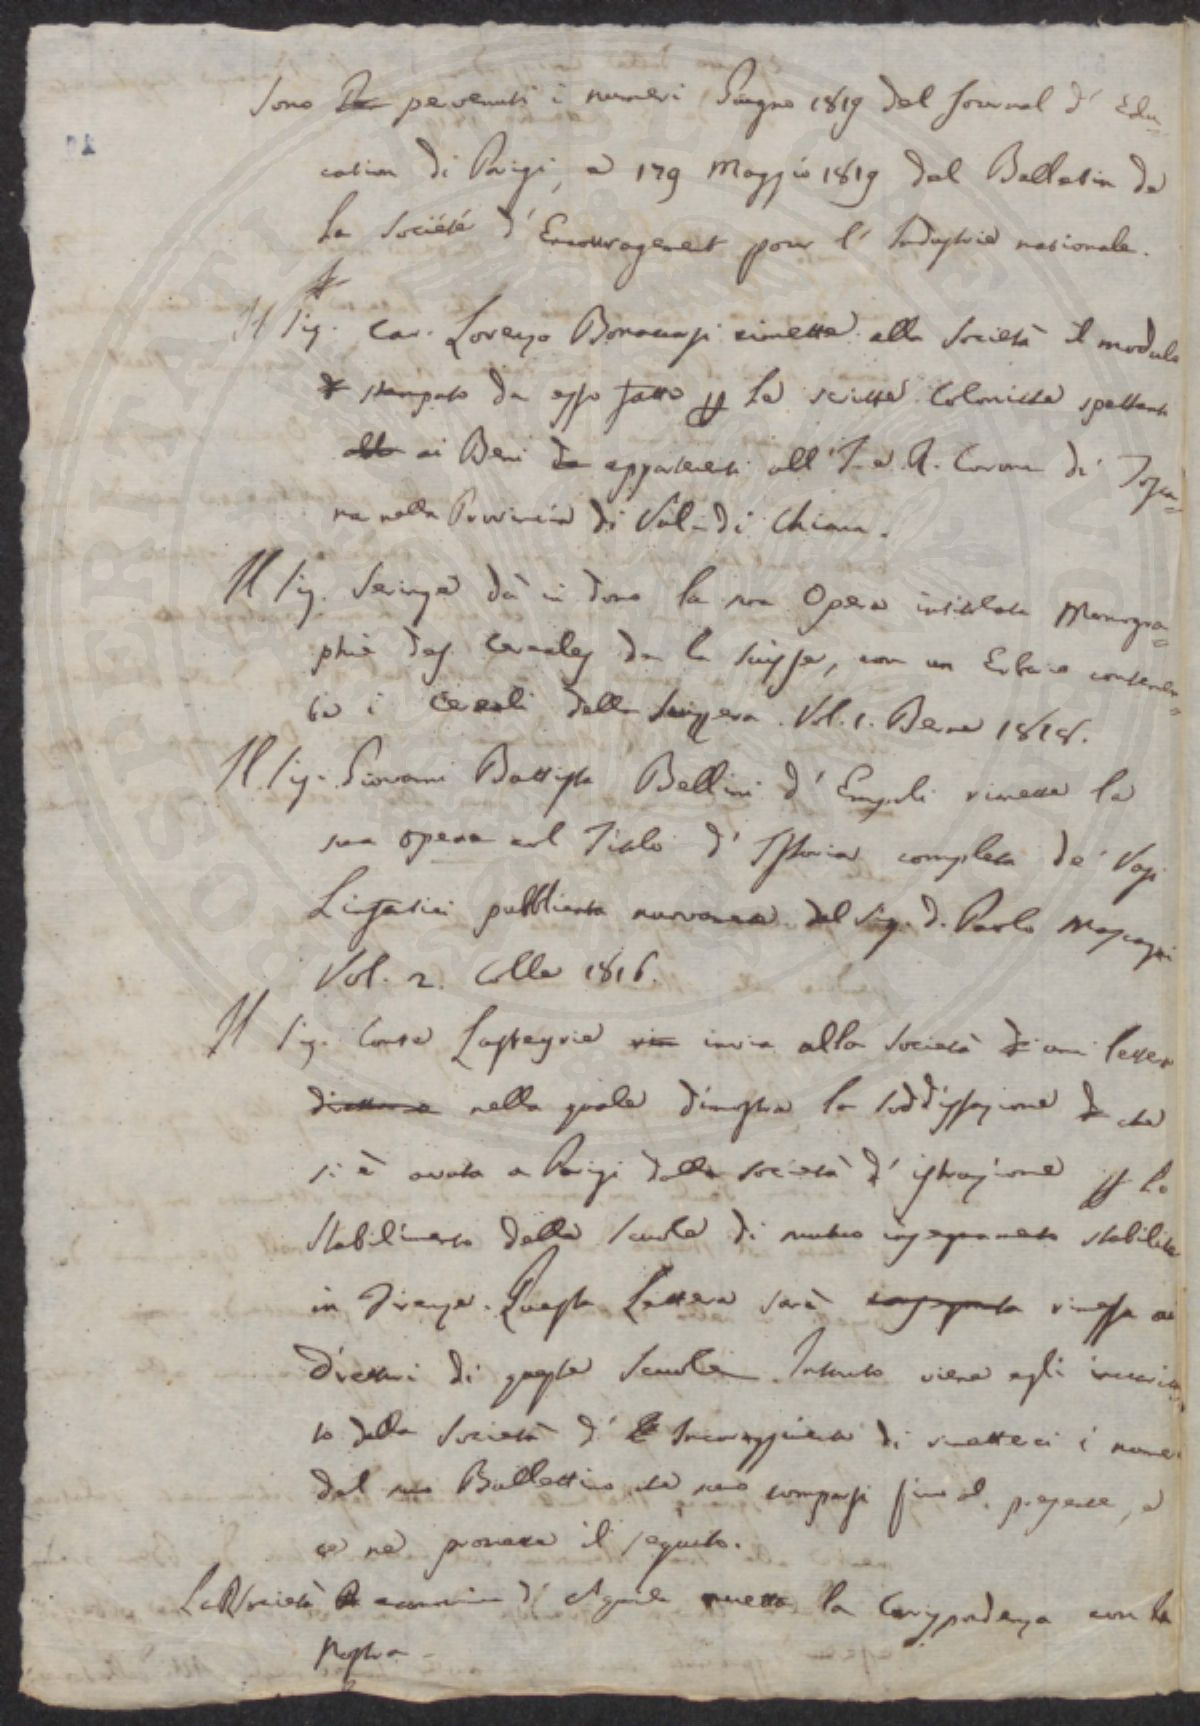 Sono pervenuti i numeri Giugno 1819 del Journal d' Edu-
cation di Parigi, e 179 Maggio 1819 del Bulletin de
la Société d' Encouragement pour l' Industrie nationale.
Il Sig. Cav. Lorenzo rimette alla Società il modulo
stampato da esso fatto la scritta Colonica spettante
ai Beni appartenenti all' I. e R. Corona di Tosca-
na nella Provincia di Val-di Chiana.
Il Sig. Seringe dà in dono la sua Opera intitolata Monogra-
phie des Cereales de la Suisse, con un Erbario contenen-
te i Cereali della Svizzera. Vol. 1. Berne 1818.
Il Sig. Giovanni Battista Bellini d' Empoli rimette la
sua opera col Titolo d' Istoria completa de' Vasi
Linfatici pubblicata nuovamente del Sig. D. Paolo Mascagni
Vol. 2. Colle 1816.
Il Sig. Conte Lasteyrie invia alla Società una lettera
nella quale dimostra la soddisfazione che
si è avuta a Parigi dalla Società d' istruzione lo
stabilimento delle Scuole di mutuo insegnamento stabilite
in Firenze. Questa Lettera sarà rimessa ai
Direttori di queste Scuole. Intanto viene egli incarica-
to dalla Società d' Incoraggimento di rimetterci i numeri
del suo Bullettino che sono comparsi fino al presente, e
ce ne promette il seguito.
La Società economica d' la Corrispondenza con la
Nostra.